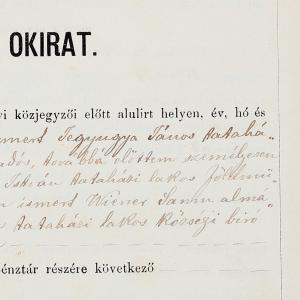 OKIRAT.
vi közjegyzői előtt alulirt helyen, év, hó és
ismert Tegyugya János tatahá-
adós, továbbá előttem személyesen
István tataházi lakos földmű-
n ismert Wiener Samu alma-
s tataházi lakos községi biró
énztár részére következő